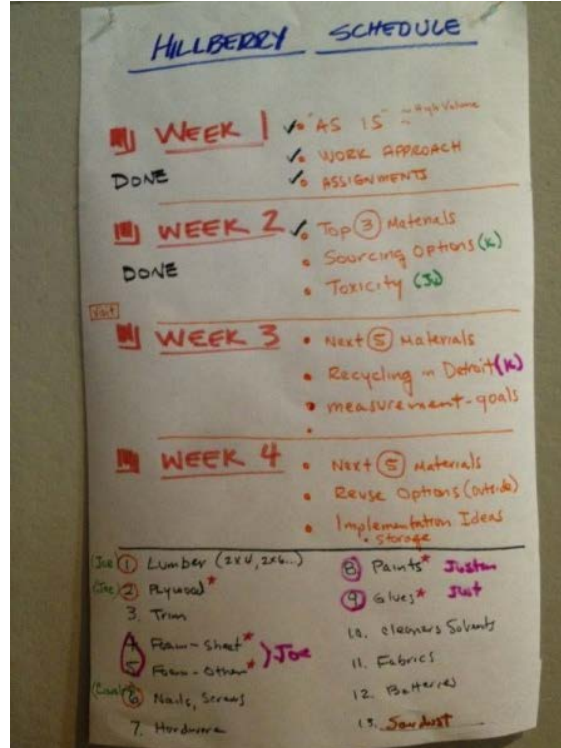 HILLBERRY SCHEDULE
WEEK 1
DONE
✓• "AS IS" - High Volume
✓• WORK APPROACH
✓• ASSIGNMENTS
WEEK 2
DONE
✓• Top 3 Materials
• Sourcing Options (K)
• Toxicity (Ju)
Visit
WEEK 3
• Next 5 Materials
• Recycling in Detroit (K)
• measurement-goals
•
WEEK 4
• Next 5 Materials
• Reuse Options (outside)
• Implementation Ideas
• storage
(Joe) 1 Lumber (2x4, 2x6...)
(Joe) 2. Plywood*
3. Trim
4 Foam-Sheet*
5 Foam-Other*
) Joe
6 Nails, Screws
7. Hardware
8. Paints* Justin
9 Glues* Just
10. cleaners Solvents
11. Fabrics
12. Batteries
13. Sawdust